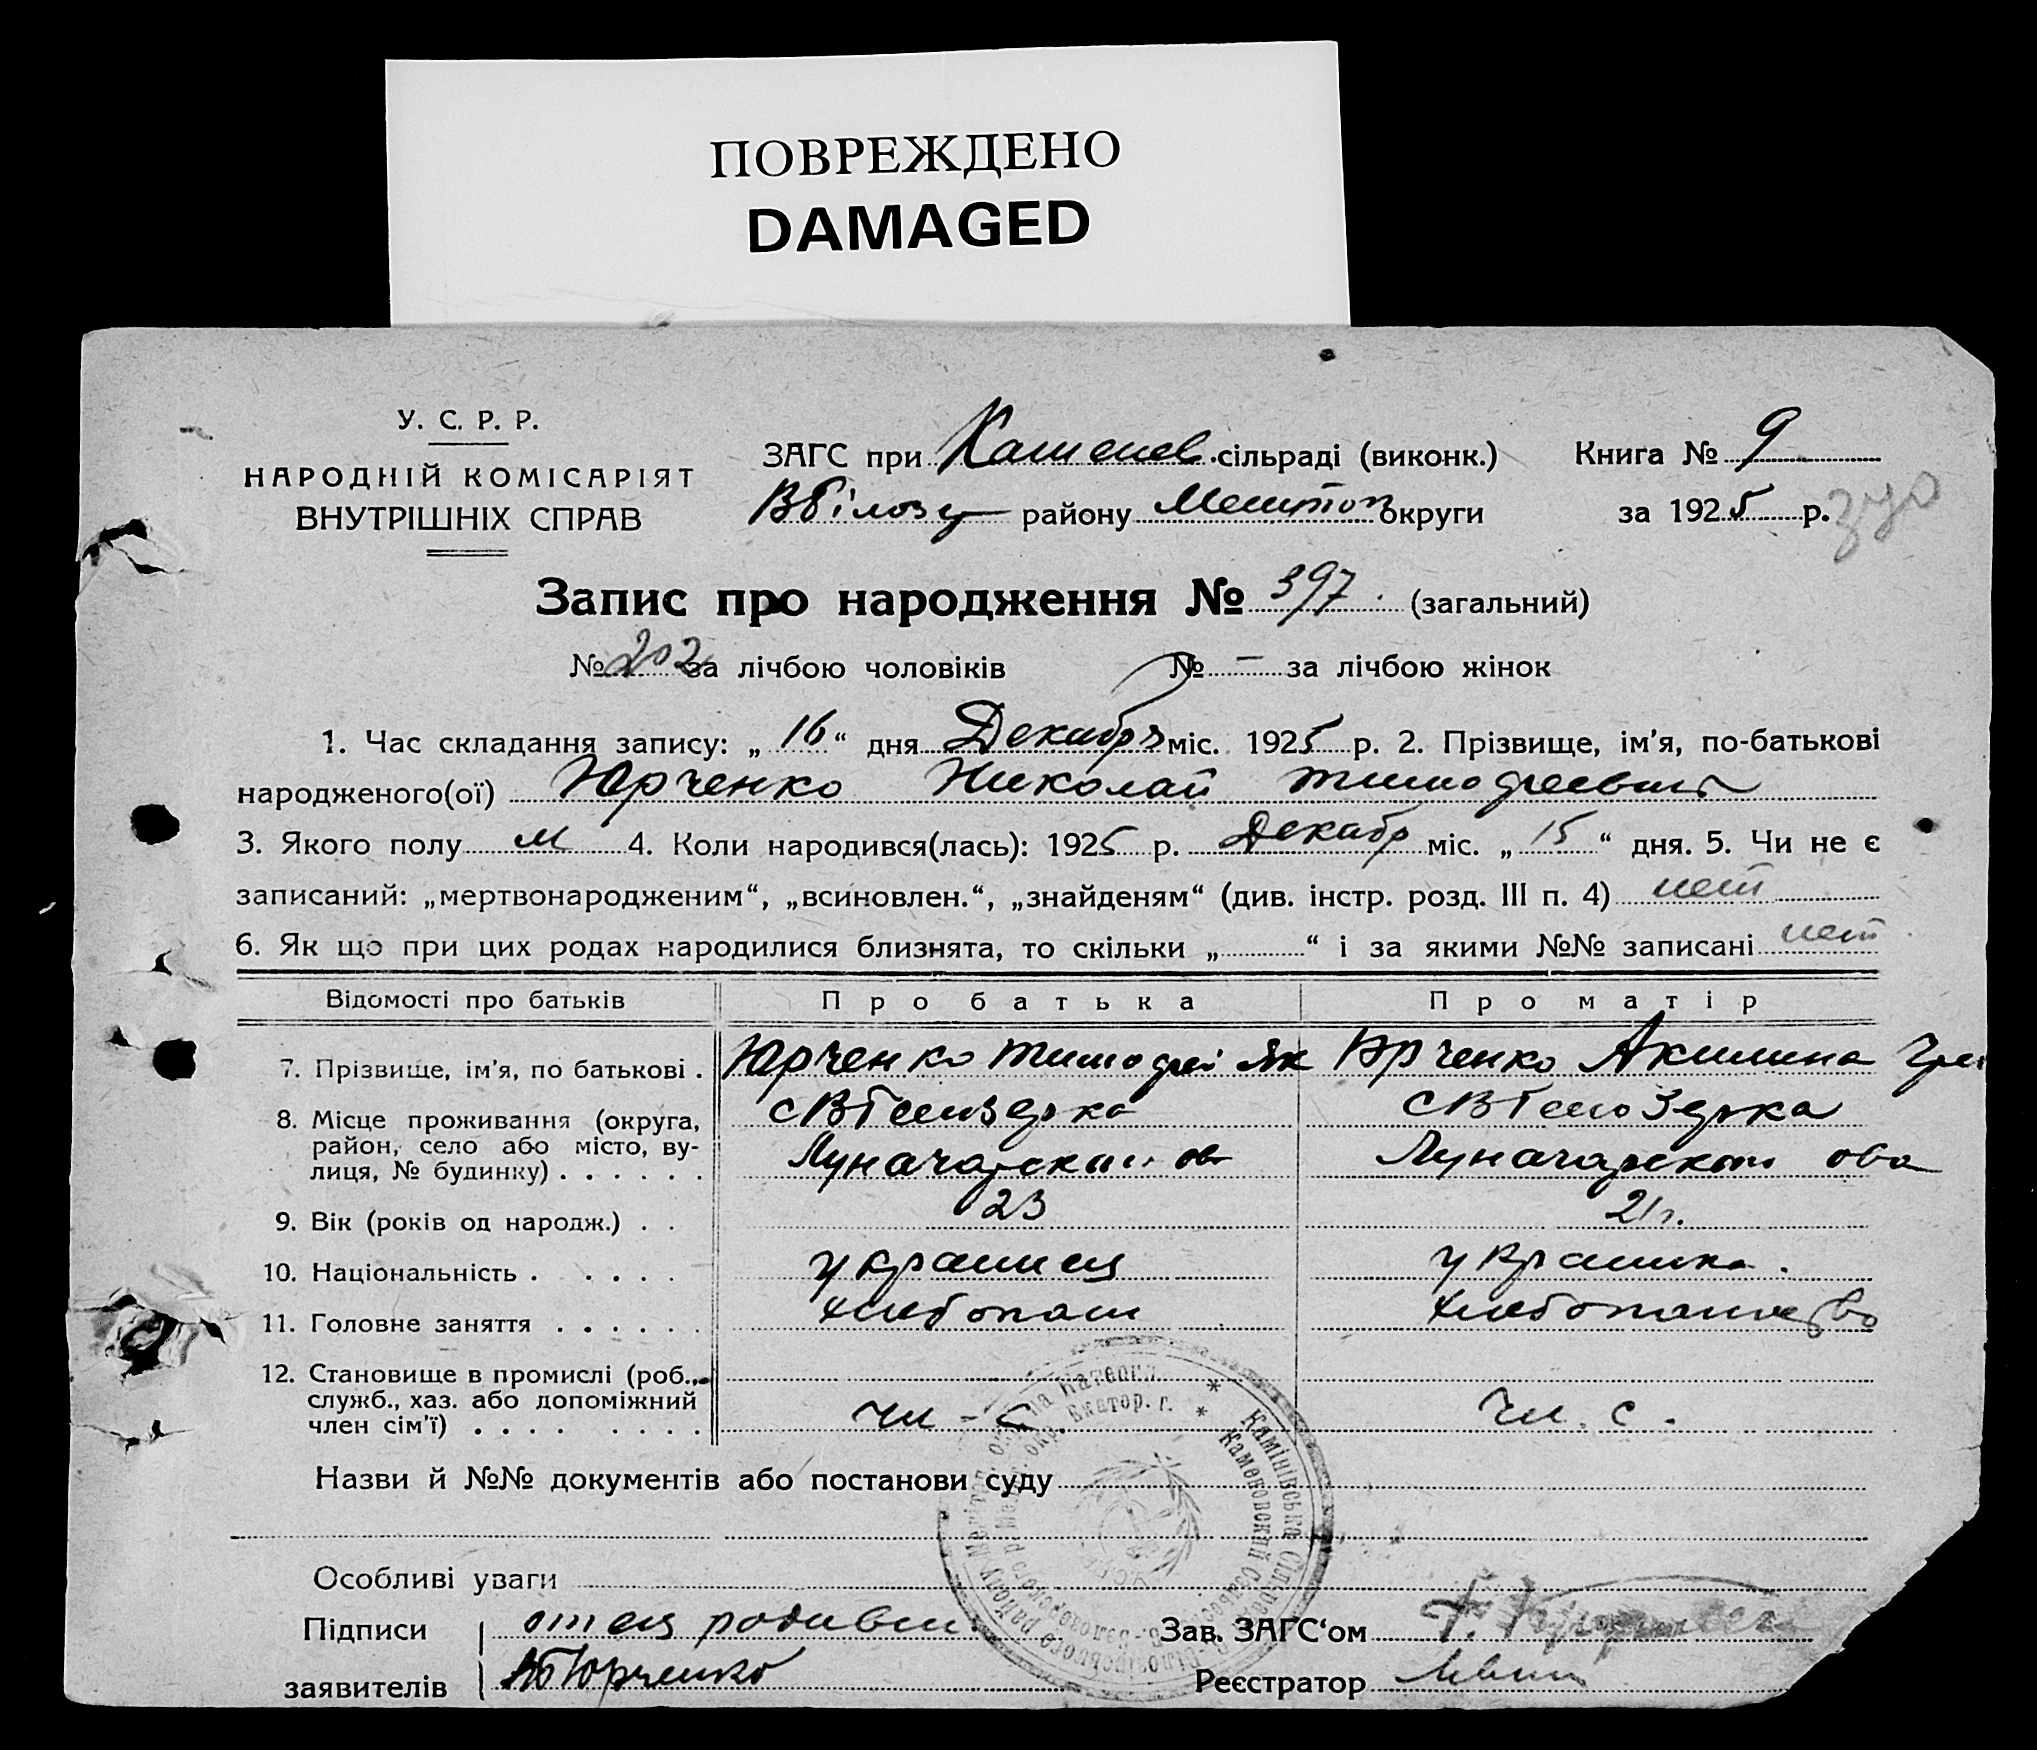 ПОВРЕЖДЕНО
DAMAGED
У. С. Р. Р.
НАРОДНІЙ КОМІСАРІЯТ
ВНУТРІШНІХ СПРАВ
ЗАГС при Каменев сільраді (виконк.)
Книга № 9
району Мелитоп округи
за 1925 р.
Запис про народження № 397. (загальний)
№ 202 за лічбою чоловіків № — за лічбою жінок
1. Час складання запису: „ 16 “ дня Декабря міс. 1925 р. 2. Прізвище, ім’я, по-батькові
народженого(ої) Юрченко Николай Тимофеевич
3. Якого полу м 4. Коли народився(лась): 1925 р. Декабр міс. „ 15 “ дня. 5. Чи не є
записаний: „мертвонародженим“, „всиновлен.“, „знайденям“ (див. інстр. розд. III п. 4) нет
6. Як що при цих родах народилися близнята, то скільки „ “ і за якими №№ записані нет
Відомості про батьків Про батька Про матір
7. Прізвище, ім’я, по батькові . Юрченко Тимофей Як Юрченко Акилина Гри
8. Місце проживання (округа,
район, село або місто, ву-
лиця, № будинку) . . . . . .
Луначарского Луначарского ова
9. Вік (років од народж.) . . 23 21 г.
10. Національність . . . . . украинец украинка.
11. Головне заняття . . . . . . хлебопаш хлебопашество
12. Становище в промислі (роб.,
служб., хаз. або допоміжний
член сім’ї) . . . . . . . . чл - с чл. с.
Назви й №№ документів або постанови суду
Особливі уваги
Підписи отец
заявителів Юрченко
Зав. ЗАГС‘ом
Реєстратор
Камінівська Сіл-рада
Каменовский